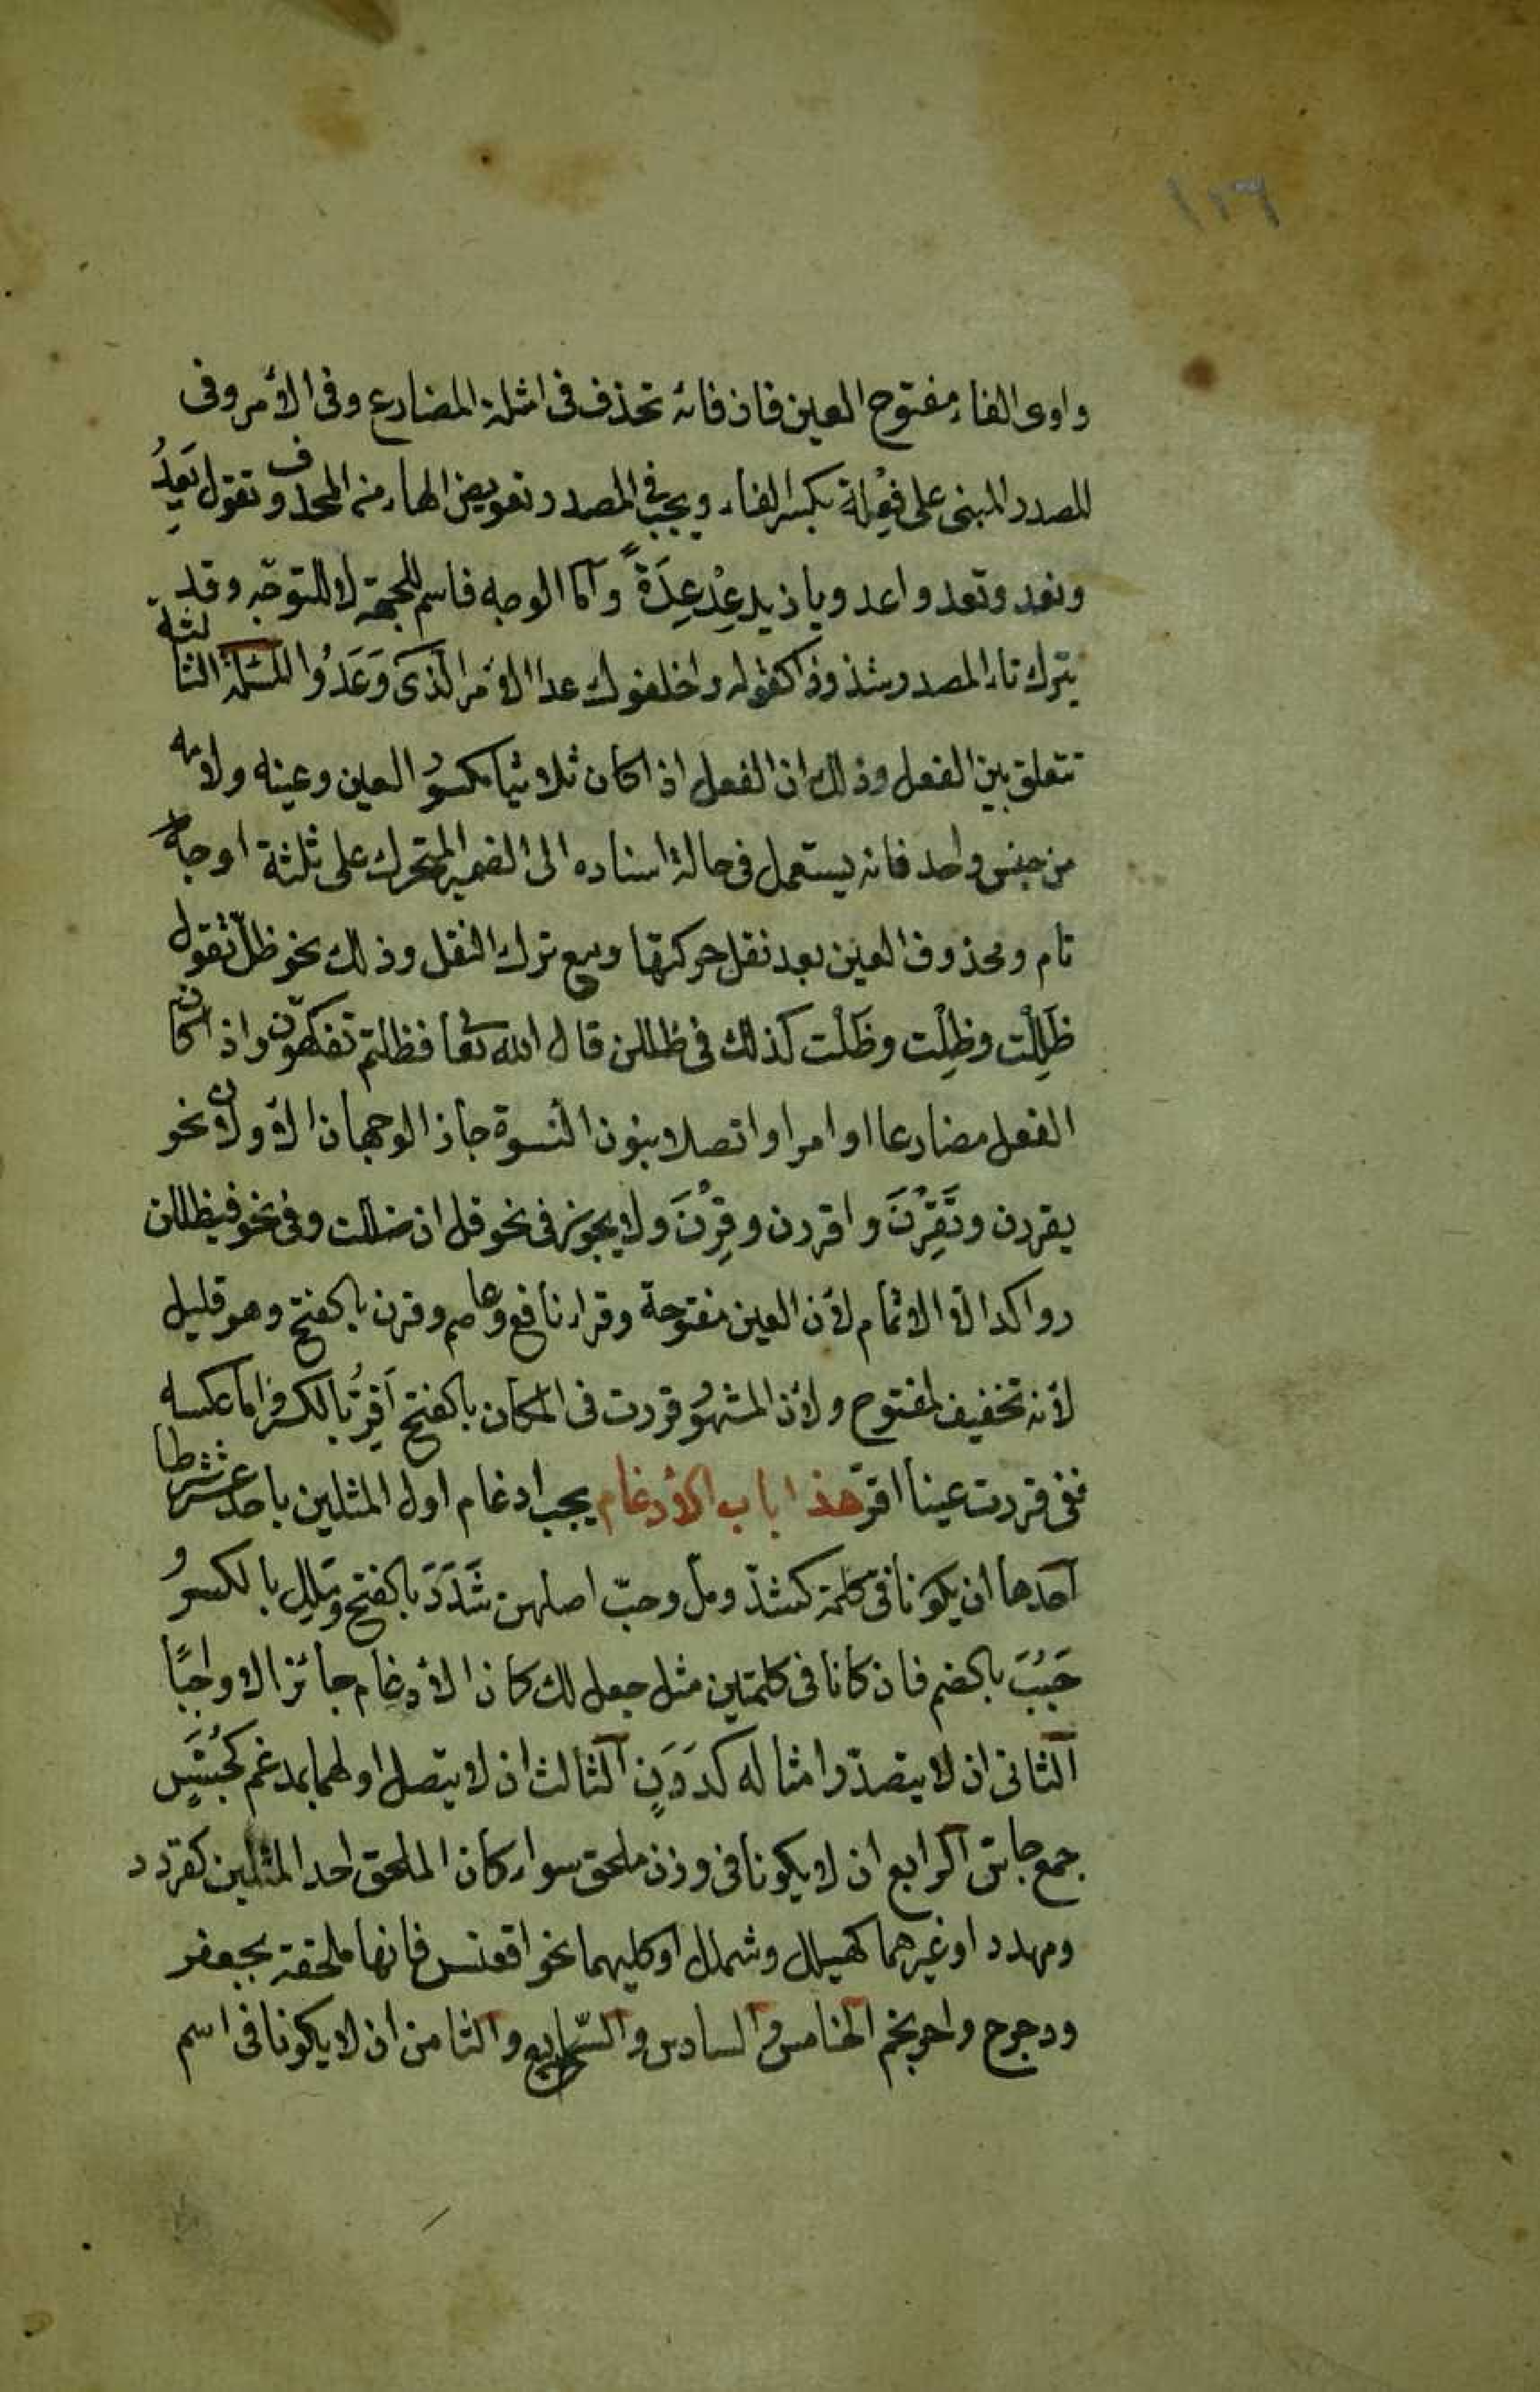 ١٠٦
واوى الفاء مفتوح العين فان فائه تحذف فى امثلة المضارع وفى الأمر وفى
المصدر المبنى على فِعْلة بكسر الفاء ويجب فى المصدر تعويض الهاء من المحذوف وتقول يَعِدُ
ونعد وتعد واعد ويا زيد عِدْ عِدَةً وأما الوجه فاسم للجهة لا للتوجّه وقد
يترك تاء المصدر شذوذا كقوله واخلفوك عدا الأمر الذى وَعَدُوا المسئلة الثالثة
تتعلق بين الفعل وذلك ان الفعل اذا كان ثلاثيا مكسور العين وعينه ولامه
من جنس واحد فانه يستعمل فى حالة اسناده الى الضمير المتحرك على ثلثة اوجه
تام ومحذوف العين بعد نقل حركتها ومع ترك النقل وذلك نحو ظلّ تقول
ظَلِلْت وظِلْت وظَلْت كذلك فى ظللن قال الله تعا فظلتم تفكهون واذا كان
الفعل مضارعا او امرا واتصلا بنون النسوة جاز الوجهان الأولان نحو
يقررن وتَقِرْنَ واقررن وقِرْنَ ولا يجوز فى نحو قل ان ضللت وفى نحو فيظللن
رواكد الا الاتمام لأن العين مفتوحة وقراء نافع وعاصم وقرن بالفتح وهو قليل
لأنه تخفيف لمفتوح ولأن المشهور قررت فى المكان بالفتح اَقِرُّ بالكسر واما عكسه
ففى قررت عينا اقرّ هذا باب الأدغام يجب ادغام اول المثلين باحد عشر شرطا
أحدها ان يكونا فى كلمة كشدّ وملّ وحبّ اصلهن شَدَدَ بالفتح ومَلِل بالكسر و
حَبُبَ بالضم فان كانا فى كلمتين مثل جعل لك كان الأدغام جائزا لا واجبًا
الثانى ان لا يتصدّر امثاله كدَدَنٍ الثالث ان لا يتصل اولهما بمدغم كجُسَّسٍ
جمع جاسّ الرابع ان لا يكونا فى وزن ملحق سواء كان الملحق احد المثلين كقردد
ومهدد او غيرهما كهيلل وشملل او كليهما نحو اقعنسس فانها ملحقة بجعفر
ودحرج واحرنجم الخامس والسادس والسابع والثامن ان لا يكونا فى اسم